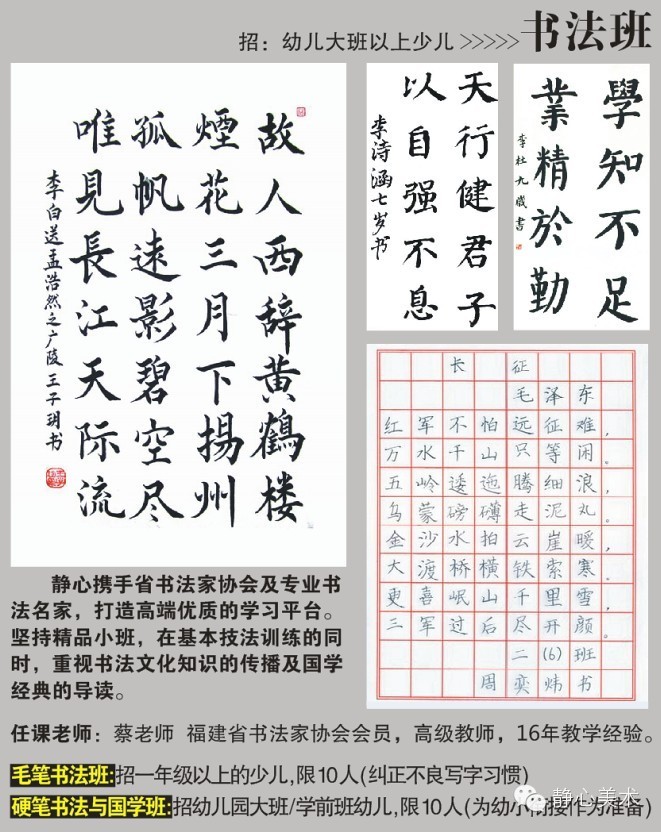 招：幼儿大班以上少儿 >>>>> 书法班
故人西辞黄鹤楼
煙花三月下揚州
孤帆遠影碧空尽
唯見長江天际流
李白送孟浩然之广陵 王子玥书
天行健君子
以自强不息
李诗涵七岁书
學知不足
業精於勤
李杜九歲書
长征
毛泽东
红军不怕远征难，
万水千山只等闲。
五岭逶迤腾细浪，
乌蒙磅礴走泥丸。
金沙水拍云崖暖，
大渡桥横铁索寒。
更喜岷山千里雪，
三军过后尽开颜。
二（6）班
周奕炜书
静心携手省书法家协会及专业书
法名家，打造高端优质的学习平台。
坚持精品小班，在基本技法训练的同
时，重视书法文化知识的传播及国学
经典的导读。
任课老师：蔡老师 福建省书法家协会会员，高级教师，16年教学经验。
毛笔书法班:招一年级以上的少儿,限10人(纠正不良写字习惯)
硬笔书法与国学班:招幼儿园大班/学前班幼儿,限10人(为幼小衔接作为准备)
静心美术